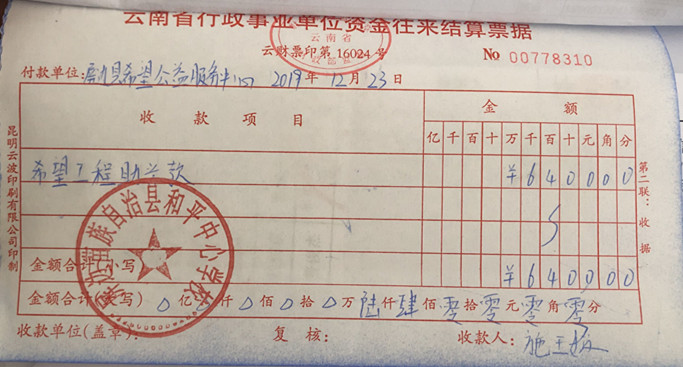 云南省行政事业单位资金往来结算票据
云南省
云财票印第16024号
No 00778310
付款单位:屏边县希望公益服务中心 2019年12月23日
收款项目
金额
亿千百十万千百十元角分
希望工程助学款
¥640000
金额合计(小写) ¥640000
金额合计(大写) 0亿0仟0佰0拾0万陆仟肆佰零拾零元零角零分
收款单位(盖章): 复核: 收款人:施
屏边苗族自治县和平中心学校
昆明云波印刷有限公司印制
第二联:收据